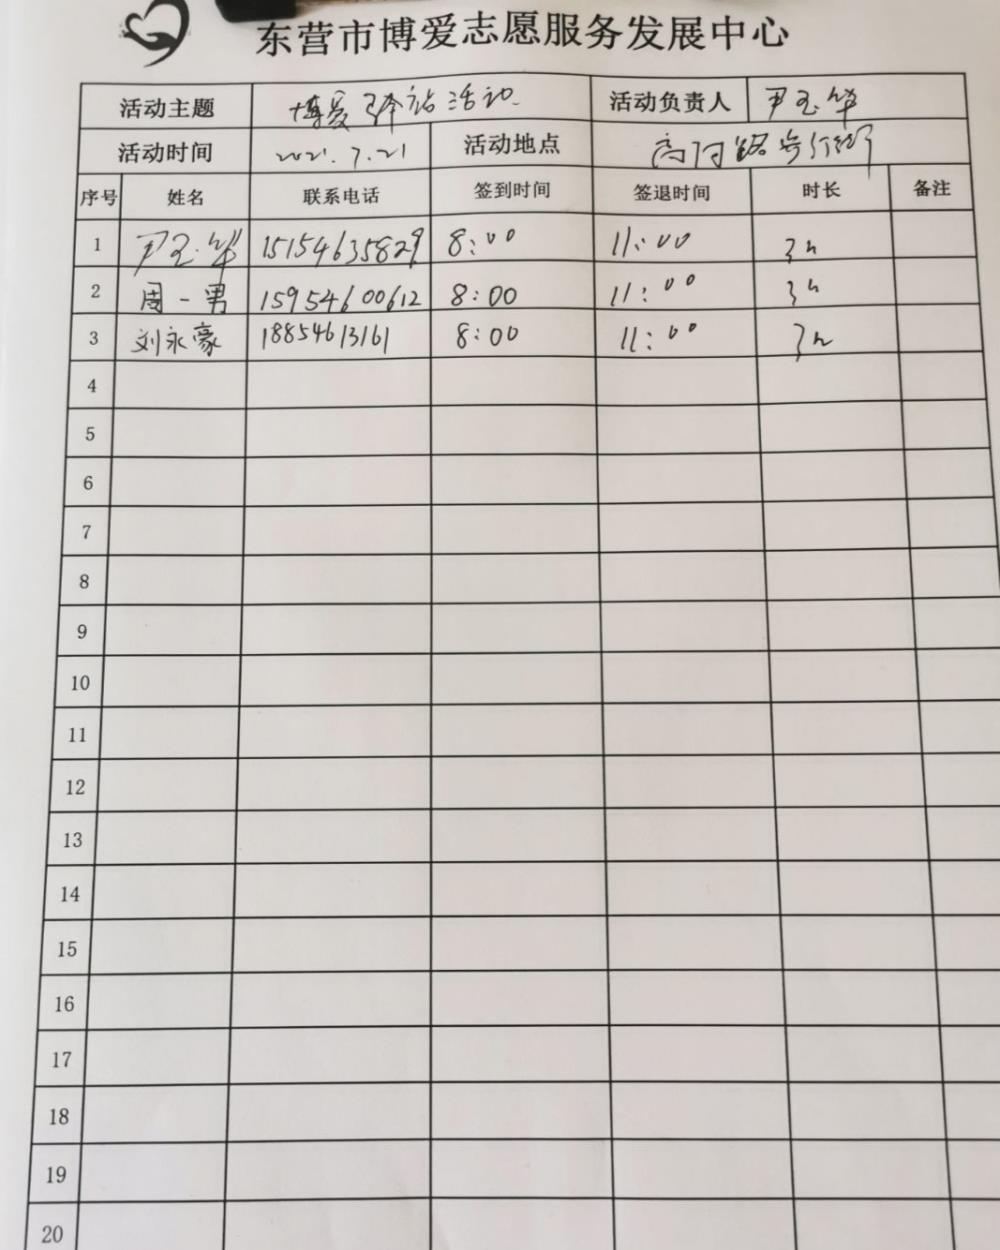 东营市博爱志愿服务发展中心
活动主题 博爱驿站活动 活动负责人 尹玉华
活动时间 2021.7.21 活动地点
序号 姓名 联系电话 签到时间 签退时间 时长 备注
1 尹玉华 15154635829 8:00 11:00 3h
2 周一男 15954600612 8:00 11:00 3h
3 刘永豪 18854613161 8:00 11:00 3h
4
5
6
7
8
9
10
11
12
13
14
15
16
17
18
19
20